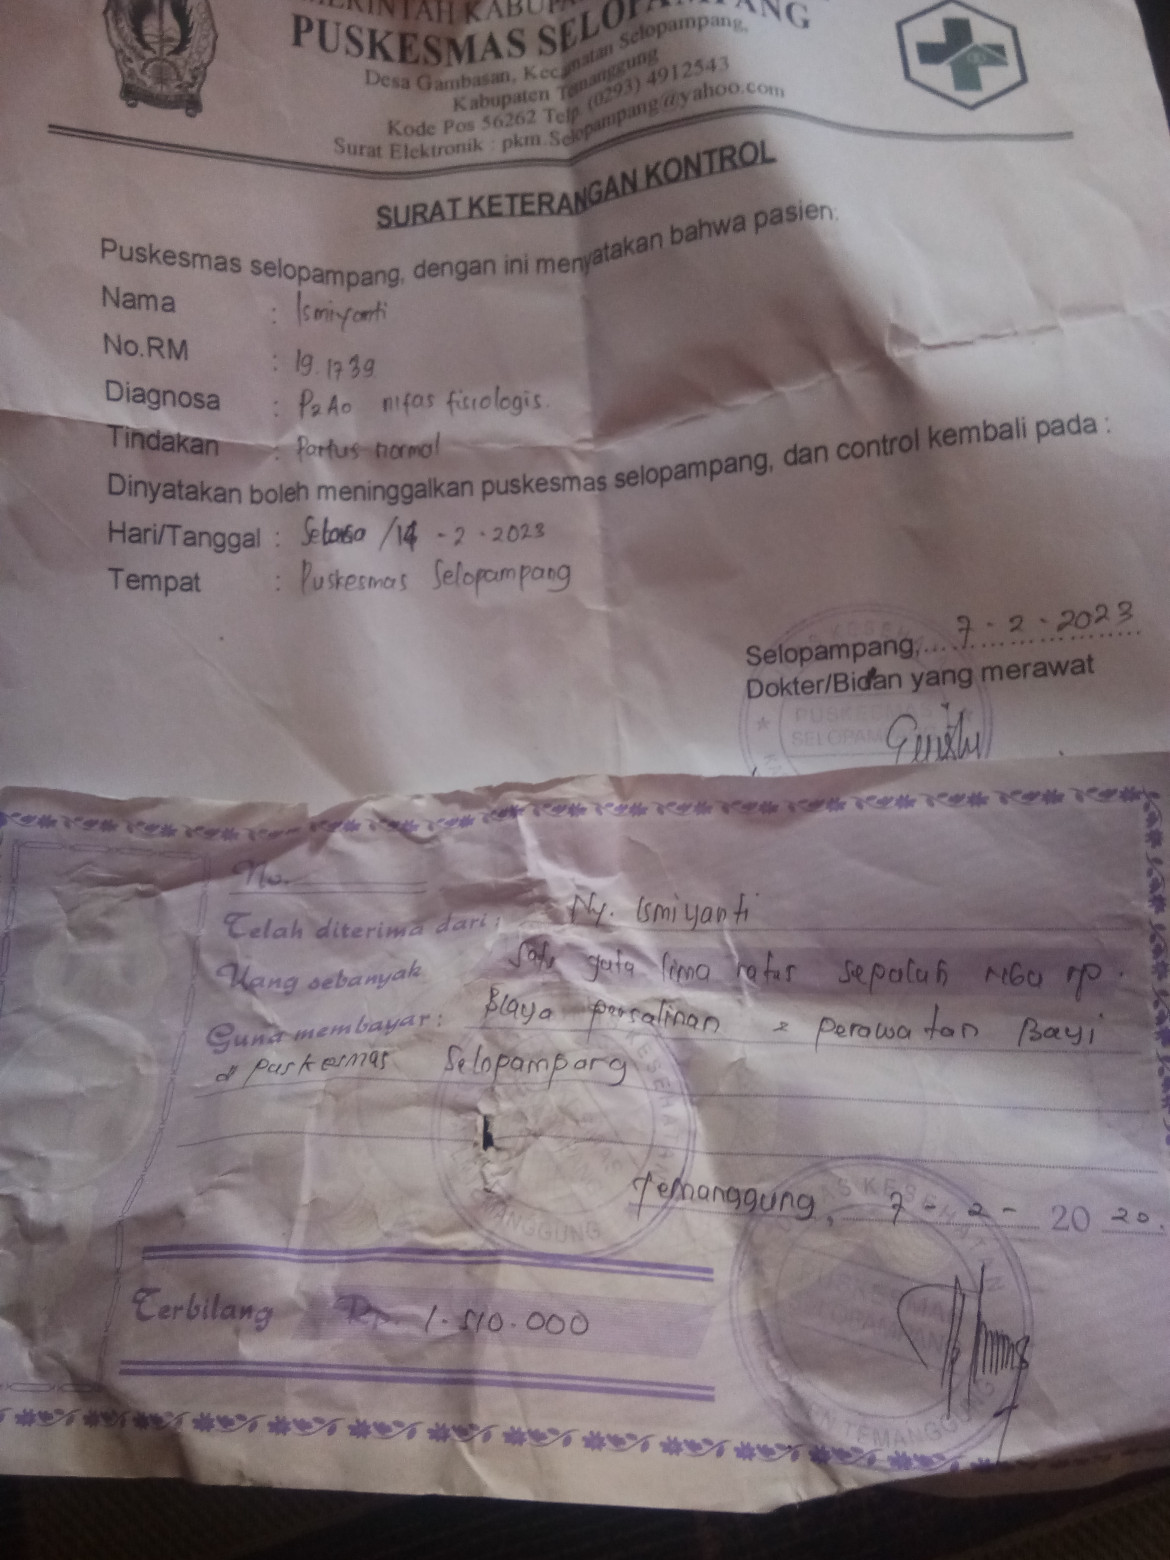 PUSKESMAS SELOPAMPANG
Desa Gambasan, Kecamatan Selopampang,
Kabupaten Temanggung
Kode Pos 56262 Telp. (0293) 4912543
Surat Elektronik : pkm.Selopampang@yahoo.com
SURAT KETERANGAN KONTROL
Puskesmas selopampang, dengan ini menyatakan bahwa pasien:
Nama : Ismiyanti
No.RM : 19.1739
Diagnosa : P2A0 nifas fisiologis.
Tindakan : Partus normal
Dinyatakan boleh meninggalkan puskesmas selopampang, dan control kembali pada :
Hari/Tanggal : Selasa /14 - 2 - 2023
Tempat : Puskesmas Selopampang
Selopampang, 7 - 2 - 2023
Dokter/Bidan yang merawat
PUSKESMAS
SELOPAM
No.
Telah diterima dari : Ny. Ismiyanti
Uang sebanyak Satu juta lima ratus sepuluh ribu rp.
Guna membayar : Biaya persalinan & perawatan Bayi
di puskesmas Selopampang
Temanggung, 7 - 2 - 20 20.
Terbilang Rp. 1.510.000